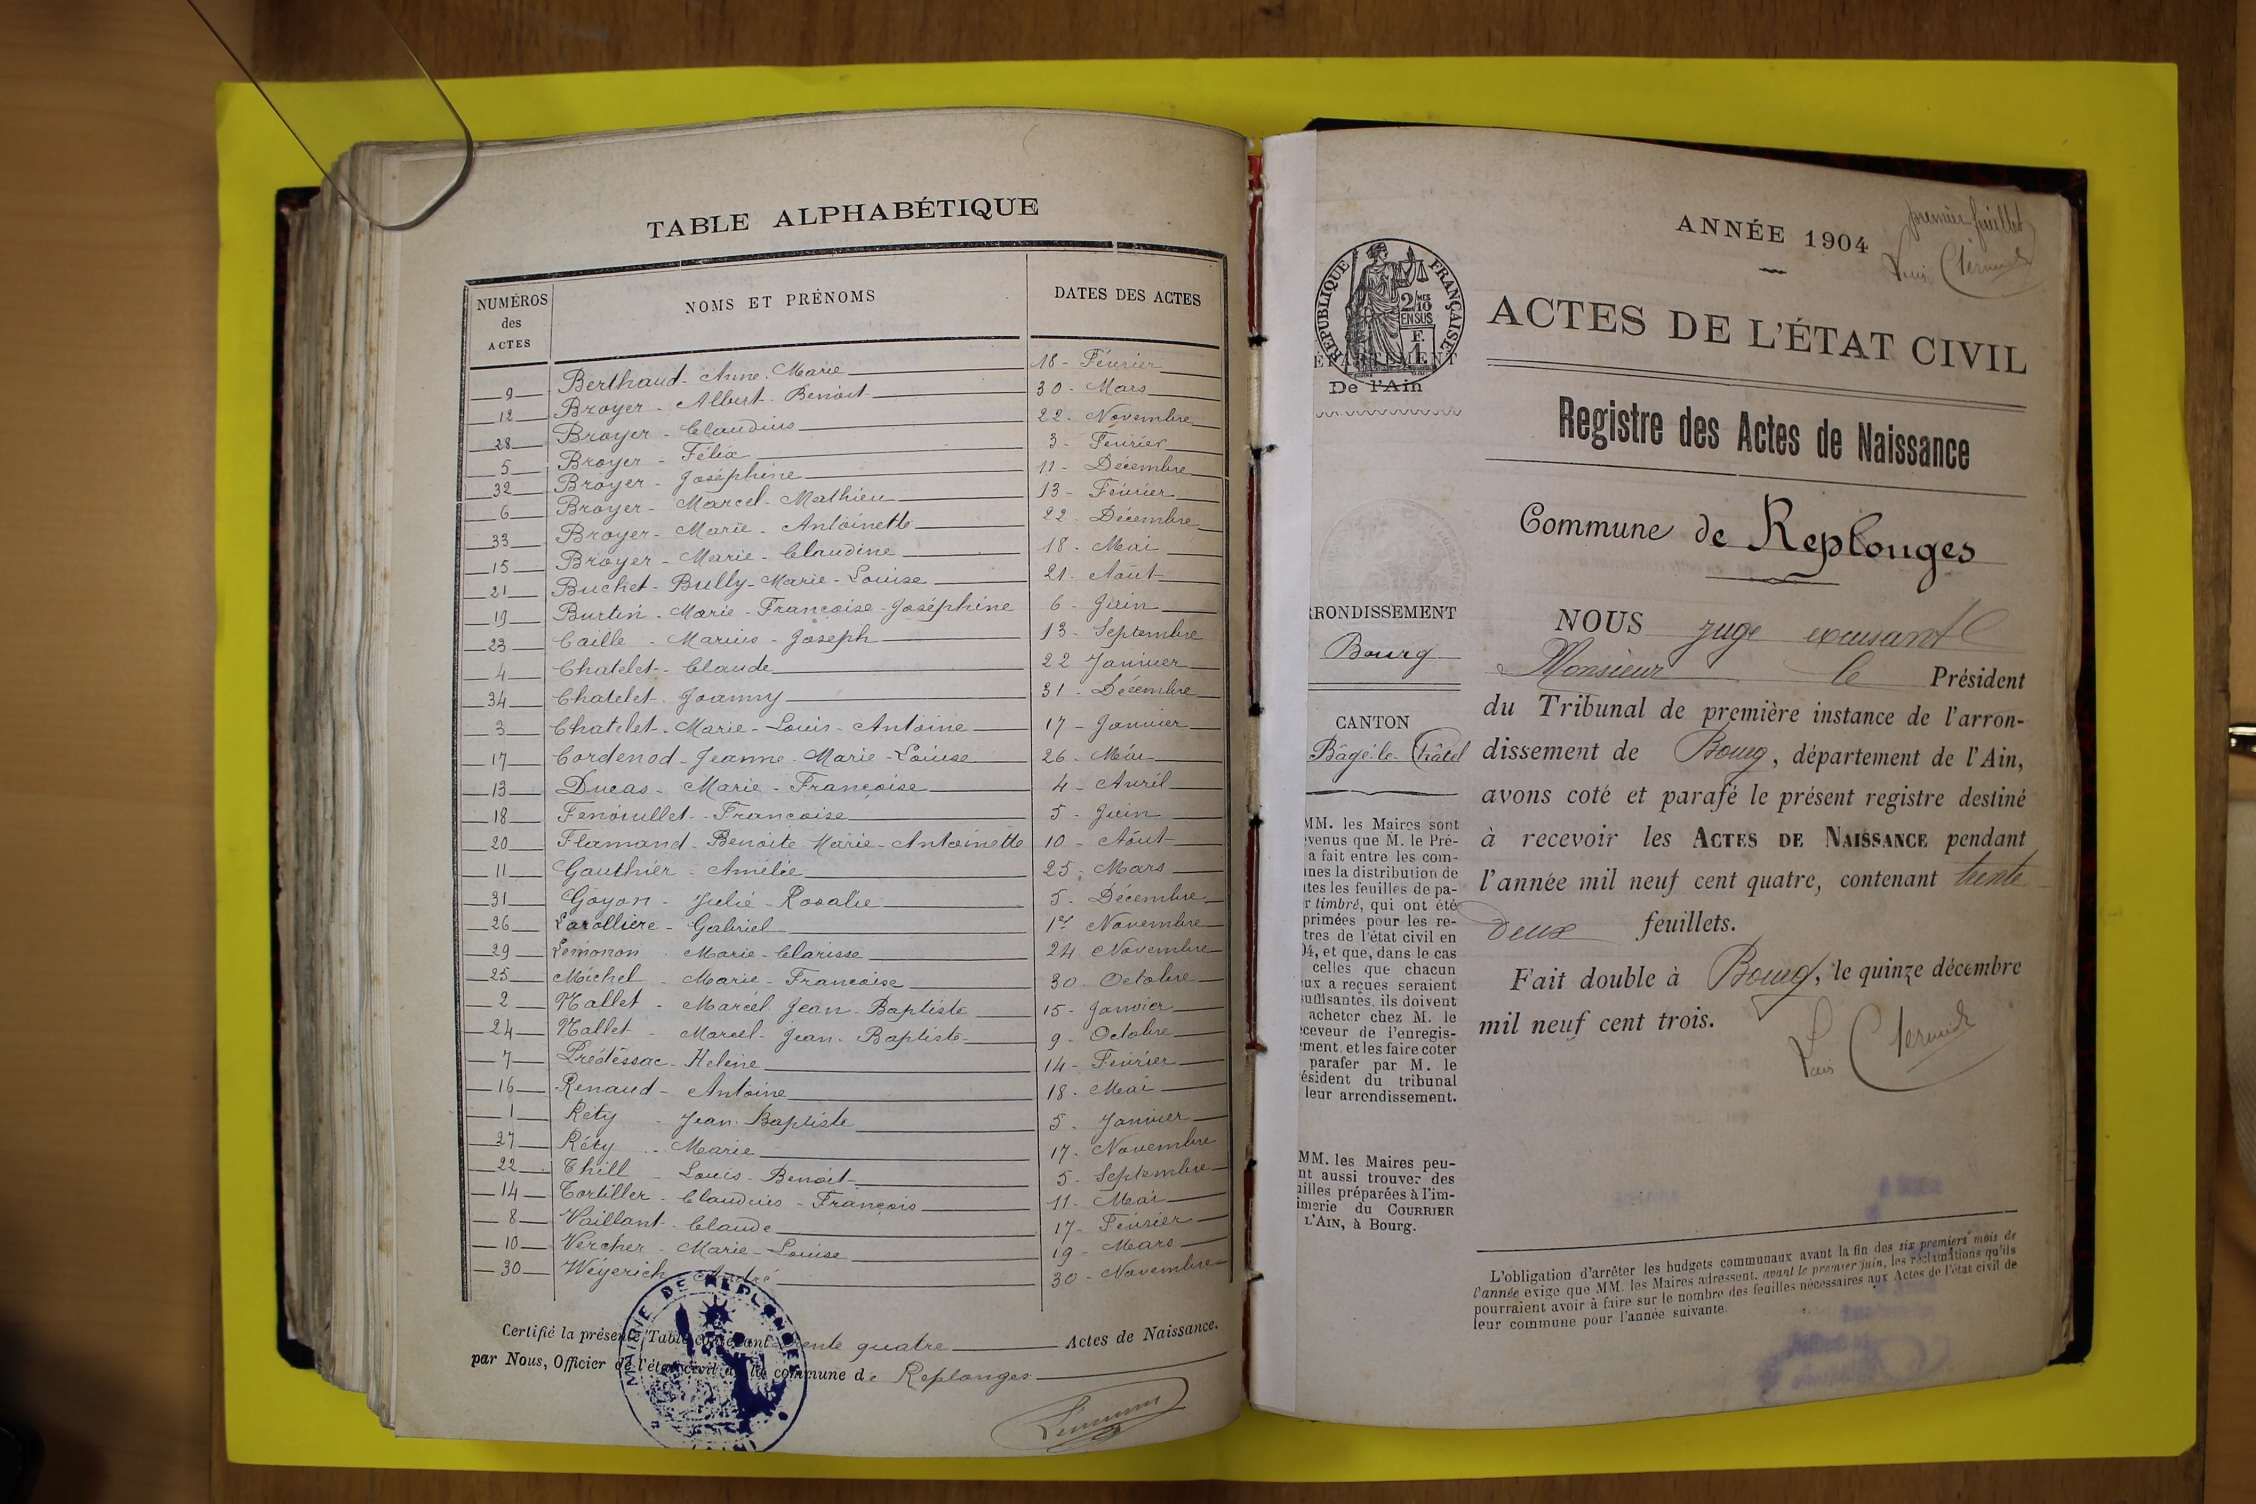 TABLE ALPHABÉTIQUE
NUMÉROS des ACTES NOMS ET PRÉNOMS DATES DES ACTES
9 Berthaud - Anne - Marie 18 - Février
12 Broyer - Albert - Benoit 30 - Mars
28 Broyer - Claudius 22 - Novembre
5 Broyer - Félix 3 - Février
32 Broyer - Joséphine 11 - Décembre
6 Broyer - Marcel - Mathieu 13 - Février
33 Broyer - Marie - Antoinette 22 - Décembre
15 Broyer - Marie - Claudine 18 - Mai
21 Buchet - Bully - Marie - Louise 21 - Août
19 Burtin - Marie - Françoise - Joséphine 6 - Juin
23 Caille - Marius - Joseph 13 - Septembre
4 Chatelet - Claude 22 Janvier
34 Chatelet - Joanny 31 - Décembre
3 Chatelet - Marie - Louis - Antoine 17 - Janvier
17 Cordenod - Jeanne - Marie - Louise 26 - Mai
13 Ducas - Marie - Françoise 4 - Avril
18 Fenouillet - Françoise 5 - Juin
20 Flamand - Benoite Marie - Antoinette 10 - Août
11 Gauthier - Amélie 25 - Mars
31 Goyon - Julie - Rosalie 5 - Décembre
26 Larollière - Gabriel 1er Novembre
29 Lemonon - Marie - Clarisse 24 Novembre
25 Michel - Marie - Françoise 30 - Octobre
2 Nallet - Marcel Jean - Baptiste 15 - Janvier
24 Nallet - Marcel - Jean - Baptiste 9 - Octobre
7 Prédessac - Hélène 14 - Février
16 Renaud - Antoine 18 - Mai
1 Rety - Jean - Baptiste 5 - Janvier
27 Réty - Marie 17 - Novembre
22 Thill - Louis - Benoit 5 - Septembre
14 Tortiller - Claudius - François 11 - Mai
8 Vaillant - Claude 17 - Février
10 Vercher - Marie - Louise 19 - Mars
30 Weyerich - André 30 - Novembre
Certifié la présente Table contenant trente quatre Actes de Naissance.
par Nous, Officier de l'état civil de la commune de Replonges
MAIRIE DE REPLONGES
ANNÉE 1904
premier feuillet
ACTES DE L'ÉTAT CIVIL
Registre des Actes de Naissance
Commune de Replonges
NOUS juge excusant
Monsieur le Président
du Tribunal de première instance de l'arron-
dissement de Bourg, département de l'Ain,
avons coté et parafé le présent registre destiné
à recevoir les ACTES DE NAISSANCE pendant
l'année mil neuf cent quatre, contenant trente
deux feuillets.
Fait double à Bourg, le quinze décembre
mil neuf cent trois.
L'obligation d'arrêter les budgets communaux avant la fin des six premiers mois de
l'année exige que MM. les Maires adressent, avant le premier juin, les réclamations qu'ils
pourraient avoir à faire sur le nombre des feuilles nécessaires aux Actes de l'état civil de
leur commune pour l'année suivante.
RÉPUBLIQUE FRANÇAISE
2/10 MES
EN SUS
F.
1
ÉPARTEMENT
De l'Ain
RRONDISSEMENT
Bourg
CANTON
Bâgé-le-Châtel
MM. les Maires sont
venus que M. le Pré-
a fait entre les com-
nes la distribution de
tes les feuilles de pa-
r timbré, qui ont été
primées pour les re-
tres de l'état civil en
04, et que, dans le cas
celles que chacun
ux a reçues seraient
suffisantes, ils doivent
acheter chez M. le
ceveur de l'enregis-
ment, et les faire coter
parafer par M. le
ésident du tribunal
leur arrondissement.
MM. les Maires peu-
nt aussi trouver des
illes préparées à l'im-
imerie du COURRIER
L'AIN, à Bourg.